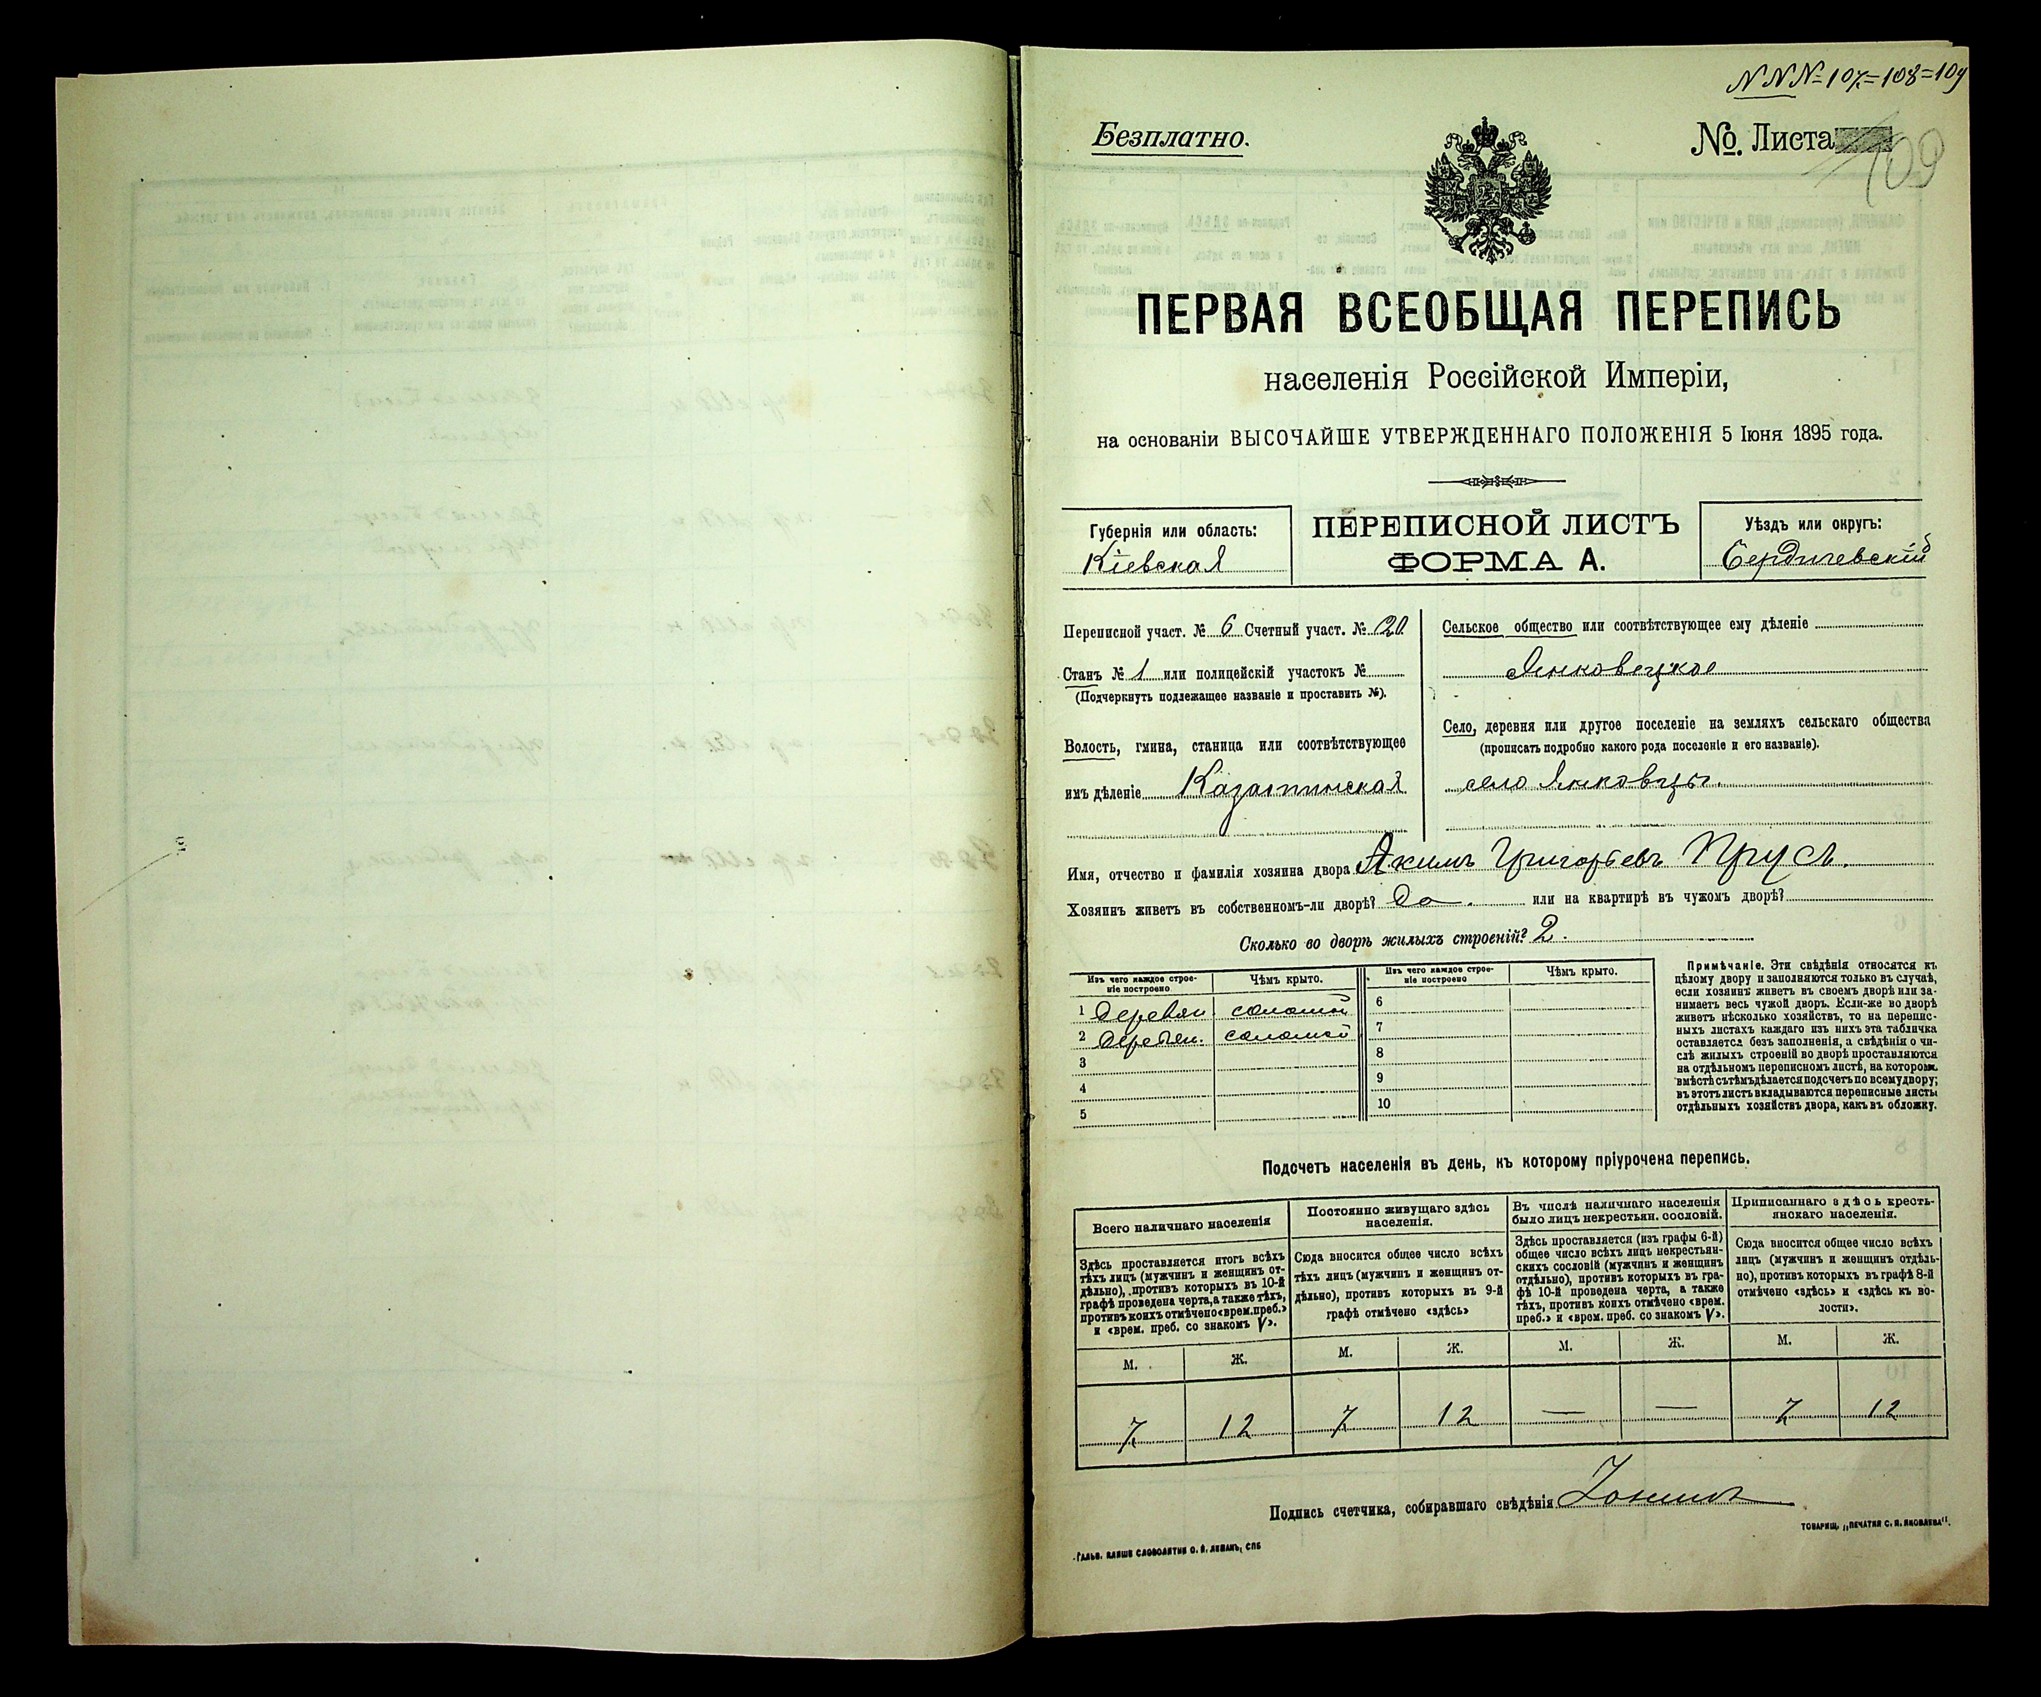 NNN=107=108=109
Безплатно.
№. Листа 109
ПЕРВАЯ ВСЕОБЩАЯ ПЕРЕПИСЬ
населенія Россійской Имперіи,
на основаніи ВЫСОЧАЙШЕ УТВЕРЖДЕННАГО ПОЛОЖЕНІЯ 5 Іюня 1895 года.
Губернія или область:
Кіевская
ПЕРЕПИСНОЙ ЛИСТЪ
ФОРМА А.
Уѣздъ или округъ:
Бердичевскій
Переписной участ. № 6 Счетный участ. № 20
Станъ № 1 или полицейскій участокъ №
(Подчеркнуть подлежащее названіе и проставить №).
Волость, гмина, станица или соотвѣтствующее
имъ дѣленіе Казатинская
Сельское общество или соотвѣтствующее ему дѣленіе
Янковецкое
Село, деревня или другое поселеніе на земляхъ сельскаго общества
(прописать подробно какого рода поселеніе и его названіе).
село Янковцы.
Имя, отчество и фамилія хозяина двора Якимъ Григорьевъ Прусъ.
Хозяинъ живетъ въ собственномъ-ли дворѣ? Да. или на квартирѣ въ чужомъ дворѣ?
Сколько во дворѣ жилыхъ строеній? 2.
Изъ чего каждое строе-
ніе построено
Чѣмъ крыто.
Изъ чего каждое строе-
ніе построено
Чѣмъ крыто.
1 Деревян соломой
2 Деревян. соломой
3
4
5
6
7
8
9
10
Примѣчаніе. Эти свѣдѣнія относятся къ
цѣлому двору и заполняются только въ случаѣ,
если хозяинъ живетъ въ своемъ дворѣ или за-
нимаетъ весь чужой дворъ. Если-же во дворѣ
живетъ нѣсколько хозяйствъ, то на перепис-
ныхъ листахъ каждаго изъ нихъ эта табличка
оставляется безъ заполненія, а свѣдѣнія о чи-
слѣ жилыхъ строеній во дворѣ проставляются
на отдѣльномъ переписномъ листѣ, на которомъ
вмѣстѣ съ тѣмъ дѣлается подсчетъ по всему двору;
въ этотъ листъ вкладываются переписные листы
отдѣльныхъ хозяйствъ двора, какъ въ обложку.
Подсчетъ населенія въ день, къ которому пріурочена перепись.
Всего наличнаго населенія
Здѣсь проставляется итогъ всѣхъ
тѣхъ лицъ (мужчинъ и женщинъ от-
дѣльно), противъ которыхъ въ 10-й
графѣ проведена черта, а также тѣхъ,
противъ коихъ отмѣчено «врем. преб.»
и «врем. преб. со знакомъ V».
Постоянно живущаго здѣсь
населенія.
Сюда вносится общее число всѣхъ
тѣхъ лицъ (мужчинъ и женщинъ от-
дѣльно), противъ которыхъ въ 9-й
графѣ отмѣчено «здѣсь»
Въ числѣ наличнаго населенія
было лицъ некрестьян. сословій.
Здѣсь проставляется (изъ графы 6-й)
общее число всѣхъ лицъ некрестьян-
скихъ сословій (мужчинъ и женщинъ
отдѣльно), противъ которыхъ въ гра-
фѣ 10-й проведена черта, а также
тѣхъ, противъ коихъ отмѣчено «врем.
преб.» и «врем. преб. со знакомъ V».
Приписаннаго здѣсь кресть-
янскаго населенія.
Сюда вносится общее число всѣхъ
лицъ (мужчинъ и женщинъ отдѣль-
но), противъ которыхъ въ графѣ 8-й
отмѣчено «здѣсь» и «здѣсь къ во-
лости».
М. Ж. М. Ж. М. Ж. М. Ж.
7 12 7 12 — — 7 12
Подпись счетчика, собиравшаго свѣдѣнія
Гальв. клише словолитни О. И. Леманъ, СПБ
ТОВАРИЩ. „ПЕЧАТНЯ С. П. ЯКОВЛЕВА".